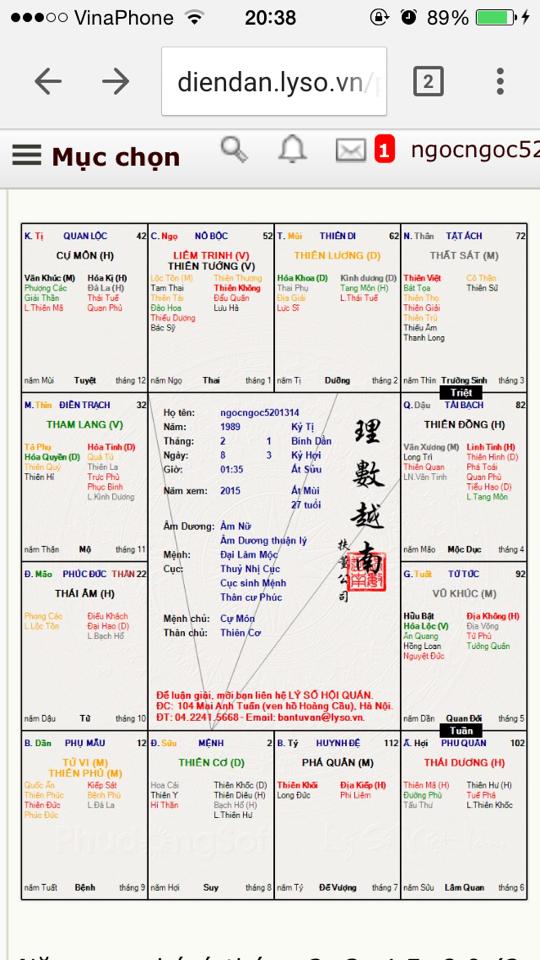 VinaPhone 20:38 89%
diendan.lyso.vn/p 2
Mục chọn 1 ngocngoc52
K. Tị QUAN LỘC 42
CỰ MÔN (H)
Văn Khúc (M) Hóa Kị (H)
Phượng Các Đà La (H)
Giải Thần Thái Tuế
L.Thiên Mã Quan Phù
năm Mùi Tuyệt tháng 12
C. Ngọ NÔ BỘC 52
LIÊM TRINH (V)
THIÊN TƯỚNG (V)
Lộc Tồn (M) Thiên Thương
Tam Thai Thiên Không
Thiên Tài Đẩu Quân
Đào Hoa Lưu Hà
Thiếu Dương
Bác Sỹ
năm Ngọ Thai tháng 1
T. Mùi THIÊN DI 62
THIÊN LƯƠNG (D)
Hóa Khoa (D) Kình dương (D)
Thai Phụ Tang Môn (H)
Địa Giải L.Thái Tuế
Lực Sĩ
năm Tị Dưỡng tháng 2
N. Thân TẬT ÁCH 72
THẤT SÁT (M)
Thiên Việt Cô Thần
Bát Tọa Thiên Sứ
Thiên Thọ
Thiên Giải
Thiên Trù
Thiếu Âm
Thanh Long
năm Thìn Trường Sinh tháng 3
Triệt
M. Thìn ĐIỀN TRẠCH 32
THAM LANG (V)
Tả Phụ Hỏa Tinh (D)
Hóa Quyền (D) Quả Tú
Thiên Quý Thiên La
Thiên Hỉ Trực Phù
Phục Binh
L.Kình Dương
năm Thân Mộ tháng 11
Họ tên: ngocngoc5201314
Năm: 1989 Kỷ Tị
Tháng: 2 1 Bính Dần
Ngày: 8 3 Kỷ Hợi
Giờ: 01:35 Ất Sửu
Năm xem: 2015 Ất Mùi
27 tuổi
Âm Dương: Âm Nữ
Âm Dương thuận lý
Mệnh: Đại Lâm Mộc
Cục: Thuỷ Nhị Cục
Cục sinh Mệnh
Thân cư Phúc
Mệnh chủ: Cự Môn
Thân chủ: Thiên Cơ
理數越南
Để luận giải, mời bạn liên hệ LÝ SỐ HỘI QUÁN.
ĐC: 104 Mai Anh Tuấn (ven hồ Hoàng Cầu), Hà Nội.
ĐT: 04.2241.5668 - Email: bantuvan@lyso.vn.
Q. Dậu TÀI BẠCH 82
THIÊN ĐỒNG (H)
Văn Xương (M) Linh Tinh (H)
Long Trì Thiên Hình (D)
Thiên Quan Phá Toái
LN.Văn Tinh Quan Phủ
Tiểu Hao (D)
L.Tang Môn
năm Mão Mộc Dục tháng 4
Đ. Mão PHÚC ĐỨC THÂN 22
THÁI ÂM (H)
Phong Cáo Điếu Khách
L.Lộc Tồn Đại Hao (D)
L.Bạch Hổ
năm Dậu Tử tháng 10
G. Tuất TỬ TỨC 92
VŨ KHÚC (M)
Hữu Bật Địa Không (H)
Hóa Lộc (V) Địa Võng
Ân Quang Tử Phù
Hồng Loan Tướng Quân
Nguyệt Đức
năm Dần Quan Đới tháng 5
Tuần
B. Dần PHỤ MẪU 12
TỬ VI (M)
THIÊN PHỦ (M)
Quốc Ấn Kiếp Sát
Thiên Phúc Bệnh Phù
Thiên Đức L.Đà La
Phúc Đức
năm Tuất Bệnh tháng 9
Đ. Sửu MỆNH 2
THIÊN CƠ (D)
Hoa Cái Thiên Khốc (D)
Thiên Y Thiên Diêu (H)
Hỉ Thần Bạch Hổ (H)
L.Thiên Hư
năm Hợi Suy tháng 8
B. Tý HUYNH ĐỆ 112
PHÁ QUÂN (M)
Thiên Khôi Địa Kiếp (H)
Long Đức Phi Liêm
năm Tý Đế Vượng tháng 7
Ấ. Hợi PHU QUÂN 102
THÁI DƯƠNG (H)
Thiên Mã (H) Thiên Hư (H)
Đường Phù Tuế Phá
Tấu Thư L.Thiên Khốc
năm Sửu Lâm Quan tháng 6